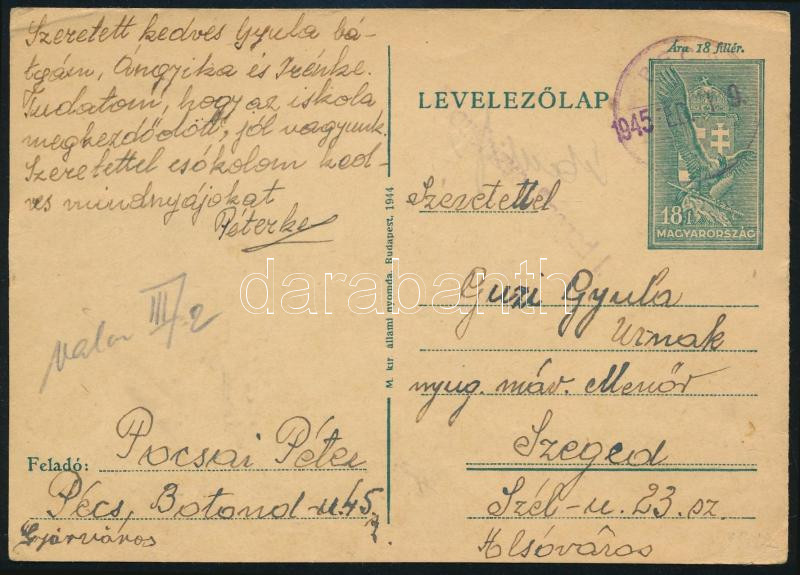 Szeretett kedves Gyula bá-
tyám, Ángyika és Irénke.
Tudatom, hogy az iskola
megkezdődött, jól vagyunk.
Szeretettel csókolom ked-
ves mindnyájokat
Péterke
III/2
Feladó: Pocsai Péter
Pécs, Botond-u. 45.
Gyárváros
M. kir. állami nyomda. Budapest, 1944
Ára 18 fillér.
LEVELEZŐLAP
1945
18 f.
MAGYARORSZÁG
Szeretettel
Guzi Gyula
Urnak
nyug. máv. Menőr
Szeged
Szél-u. 23. sz.
Alsóváros
darabanth